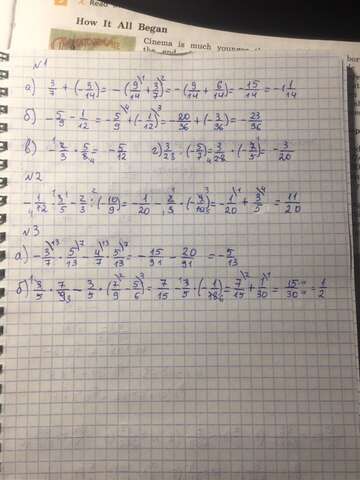 Read
How It All Began
Cinema is much younger
the end
№1
а) 3/7 + (-3/14) = -(9/14 + 3/7) = -(9/14 + 6/14) = -15/14 = -1 1/14
б) -5/9 - 1/12 = -5/9 + (-1/12) = -20/36 + (-3/36) = -23/36
в) -2/3 · 5/8 = -5/12 г) 3/23 · (-5/7) = 3/28 · (-7/5) = -3/20
№2
-1/12 · 3/5 - 2/3 : (-10/9) = -1/20 - 2/3 · (-9/10) = -1/20 + 3/5 = 11/20
№3
а) -3/7 · 5/13 - 4/7 · 5/13 = -15/91 - 20/91 = -5/13
б) 3/5 · 7/9 - 3/5 · (7/9 - 5/6) = 7/15 - 3/5 · (-1/18) = 7/15 + 1/30 = 15/30 = 1/2